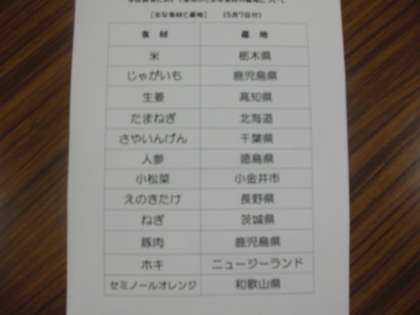 [主な食材と産地] (5月7日分)
食 材 産 地
米 栃木県
じゃがいも 鹿児島県
生姜 高知県
たまねぎ 北海道
さやいんげん 千葉県
人参 徳島県
小松菜 小金井市
えのきたけ 長野県
ねぎ 茨城県
豚肉 鹿児島県
ホキ ニュージーランド
セミノールオレンジ 和歌山県